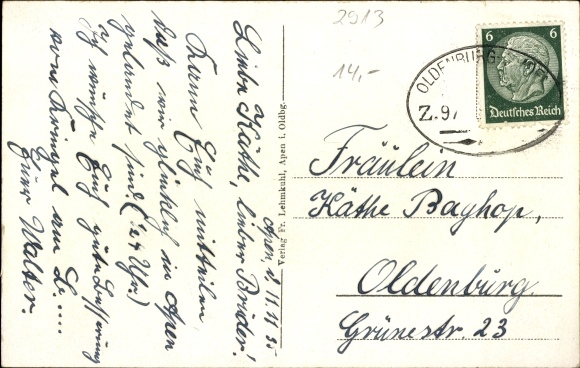 Apen, d. 11.11.35
Liebe Käthe, lieber Brüder!
Kann Euch mitteilen
daß wir glücklich in Apen
gelandet sind (
Uhr.)
Ich wünsche Euch gute Besserung
vom
Euer Walter.
Verlag Fr. Lehmkuhl, Apen i. Oldbg.
2913
14,-
OLDENBURG-
Z.97
6 6
Deutsches Reich
Fräulein
Käthe Baghop,
Oldenburg.
Grünestr. 23